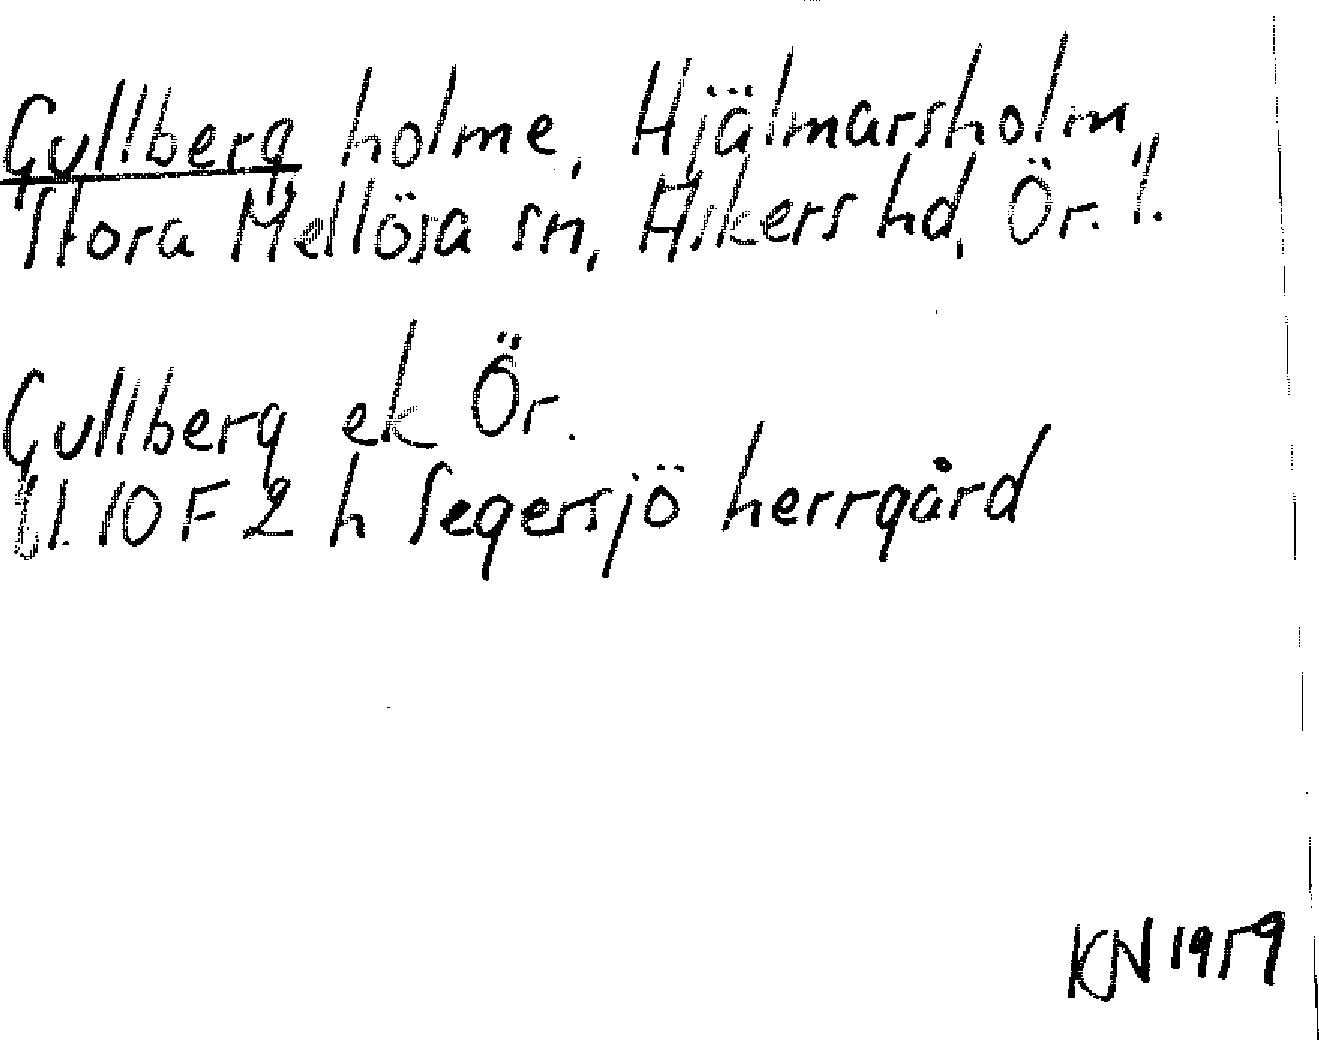 Gullberg holme, Hjälmarsholm,
Stora Mellösa sn, Askers hd, Ör. l.
Gullberg ek Ör.
Bl. 10 F 2 h Segersjö herrgård
KN 1959